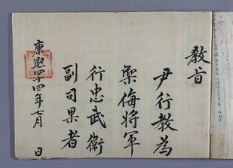 敎旨
尹行敎爲
禦侮將軍
行忠武衛
副司果者
康熙四十四年七月 日